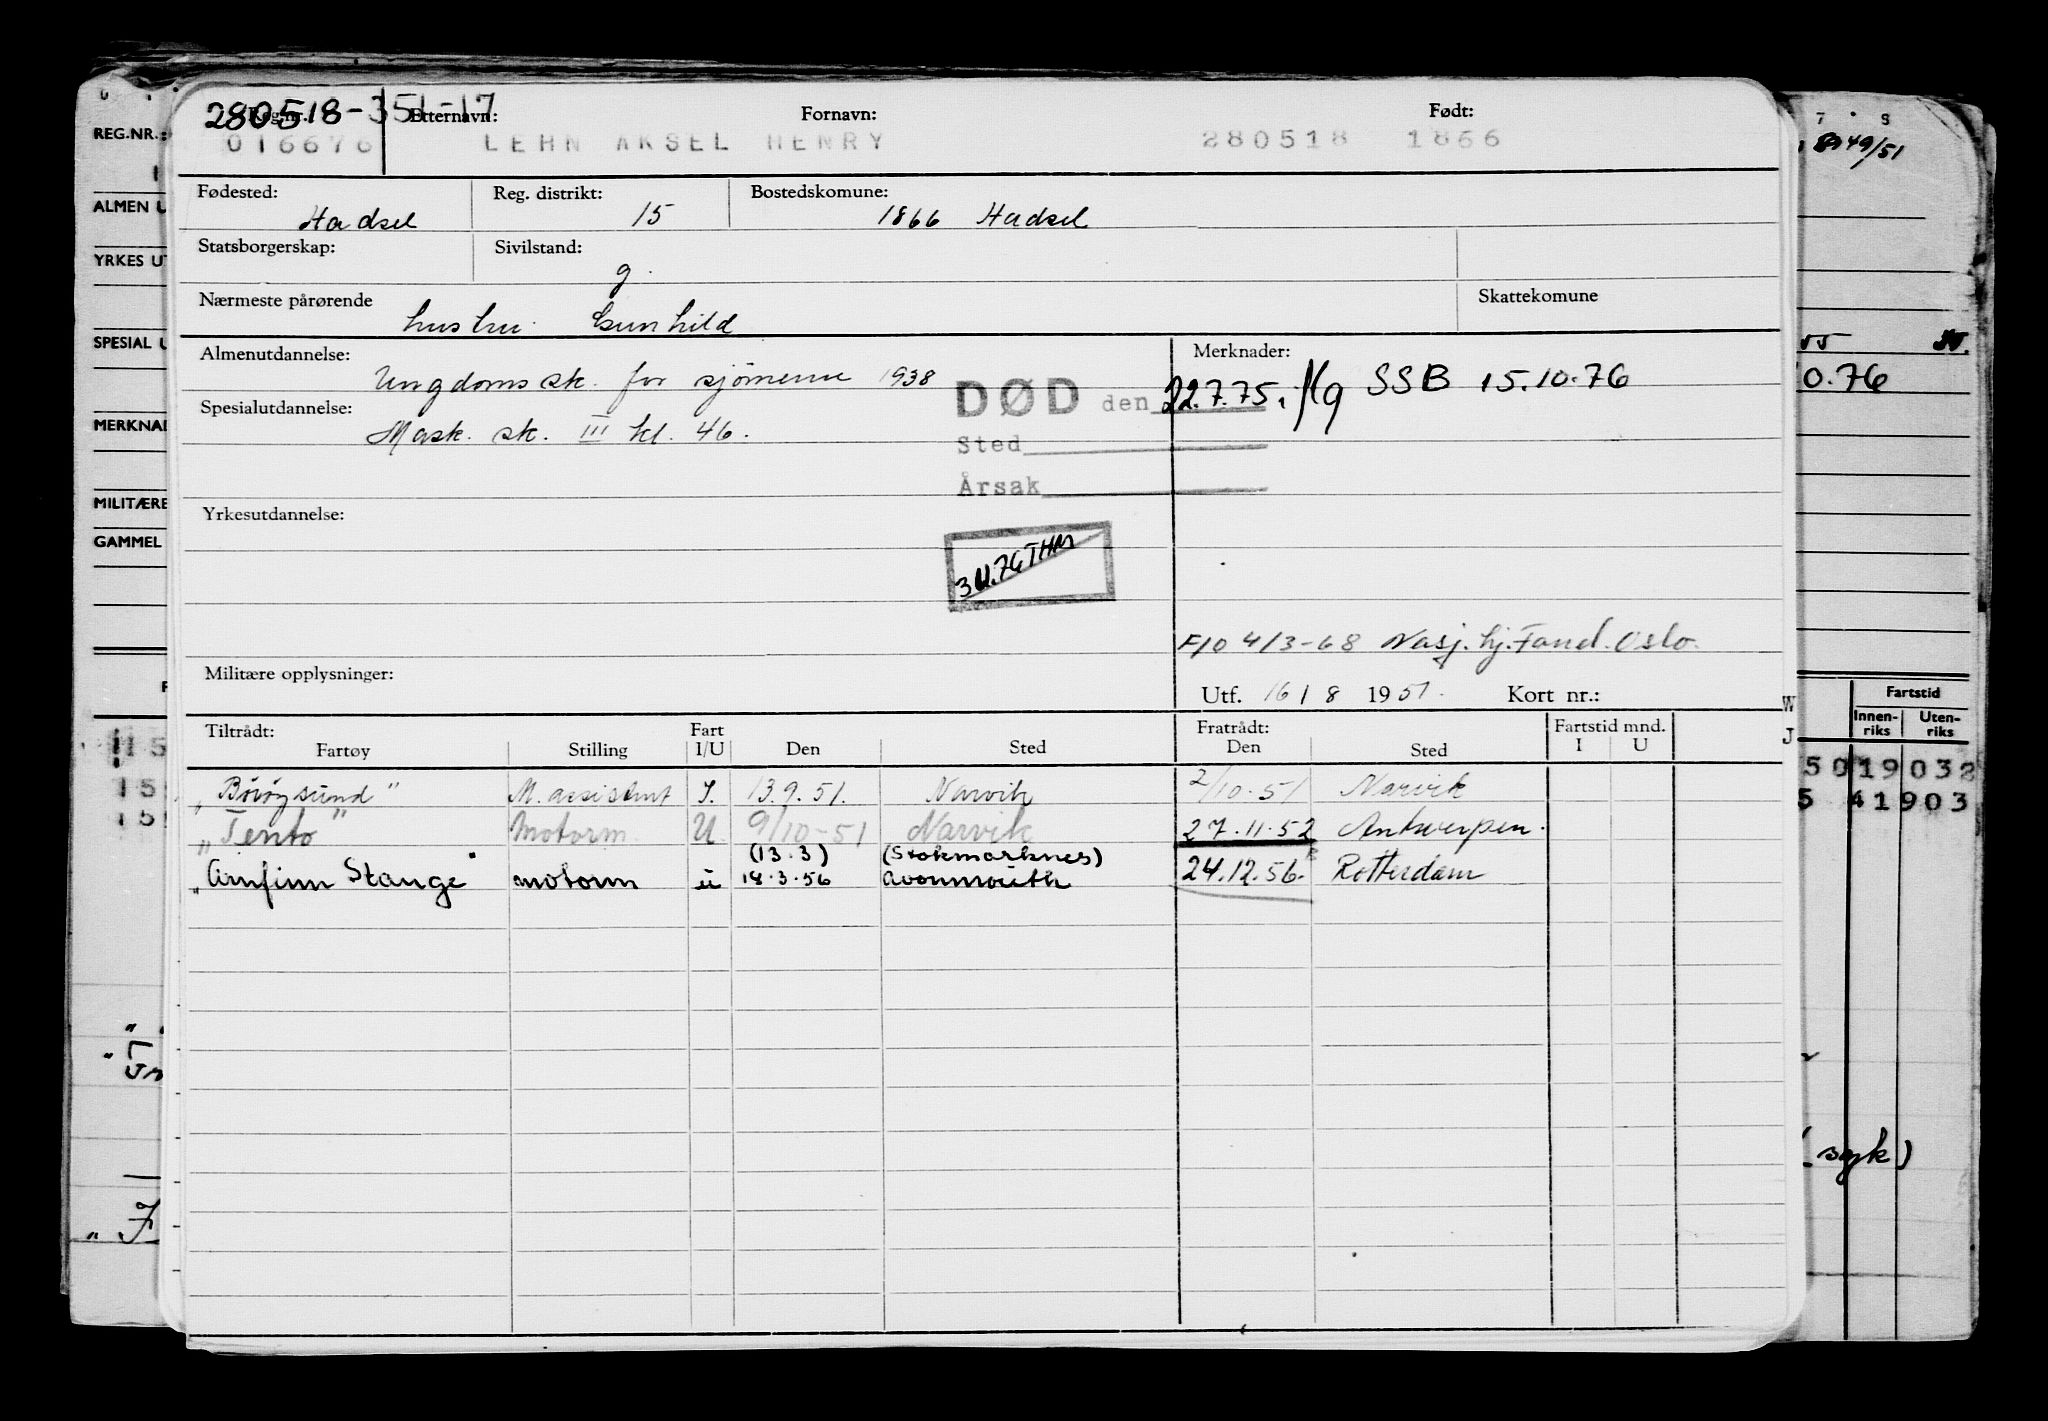 280518-351-17
Reg.nr. Etternavn: Fornavn: Født:
016676 LEHN AKSEL HENRY 280518 1866
REG.NR.: 7 8
49/51
Fødested: Hadsel Reg. distrikt: 15 Bostedskomune: 1866 Hadsel
ALMEN U
Statsborgerskap: Sivilstand: g.
YRKES UT
Nærmeste pårørende hustru Gunhild Skattekomune
SPECIAL U
Almenutdannelse: Ungdomssk. for sjömenn 1938 Merknader:
DØD den 22.7.75. SSB 15.10.76
0.76
Spesialutdannelse: Mask. sk. III kl. 46.
MERKNAD
Sted
Årsak
MILITÆRE
Yrkesutdannelse:
GAMMEL
3 11.76 THM
F/O 4/3-68 Nasj.hj.Fond.Oslo.
Militære opplysninger: Utf. 16/8 1951. Kort nr.:
W
J
Fartstid
Innen-riks Uten-riks
Tiltrådt: Fart Fratrådt: Fartstid mnd.
Fartøy Stilling I/U Den Sted Den Sted I U
„Börøysund" M. assistent I. 13.9.51. Narvik 2/10.51 Narvik
„Tento" Motorm. U. 9/10-51 Narvik 27.11.52 Antwerpen.
(13.3) (Stokmarknes)
„Arnfinn Stange" motorm u 18.3.56 Avonmouth 24.12.56. Rotterdam
15 5019032
15 5 41903
15
(syk)